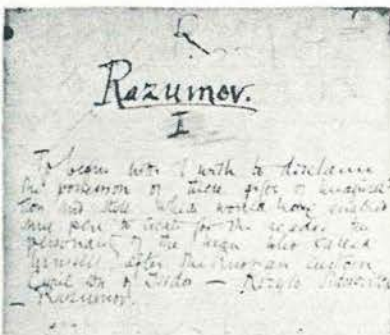 Razumov.
I
To begin with I wish to disclaim
the possession of those gifts of imagina-
tion and style which would have enabled
my pen to create for the reader the
personality of the man who called
himself, after the Russian custom
Cyril son of Isidor — Kirylo Sidorovitch
— Razumov.